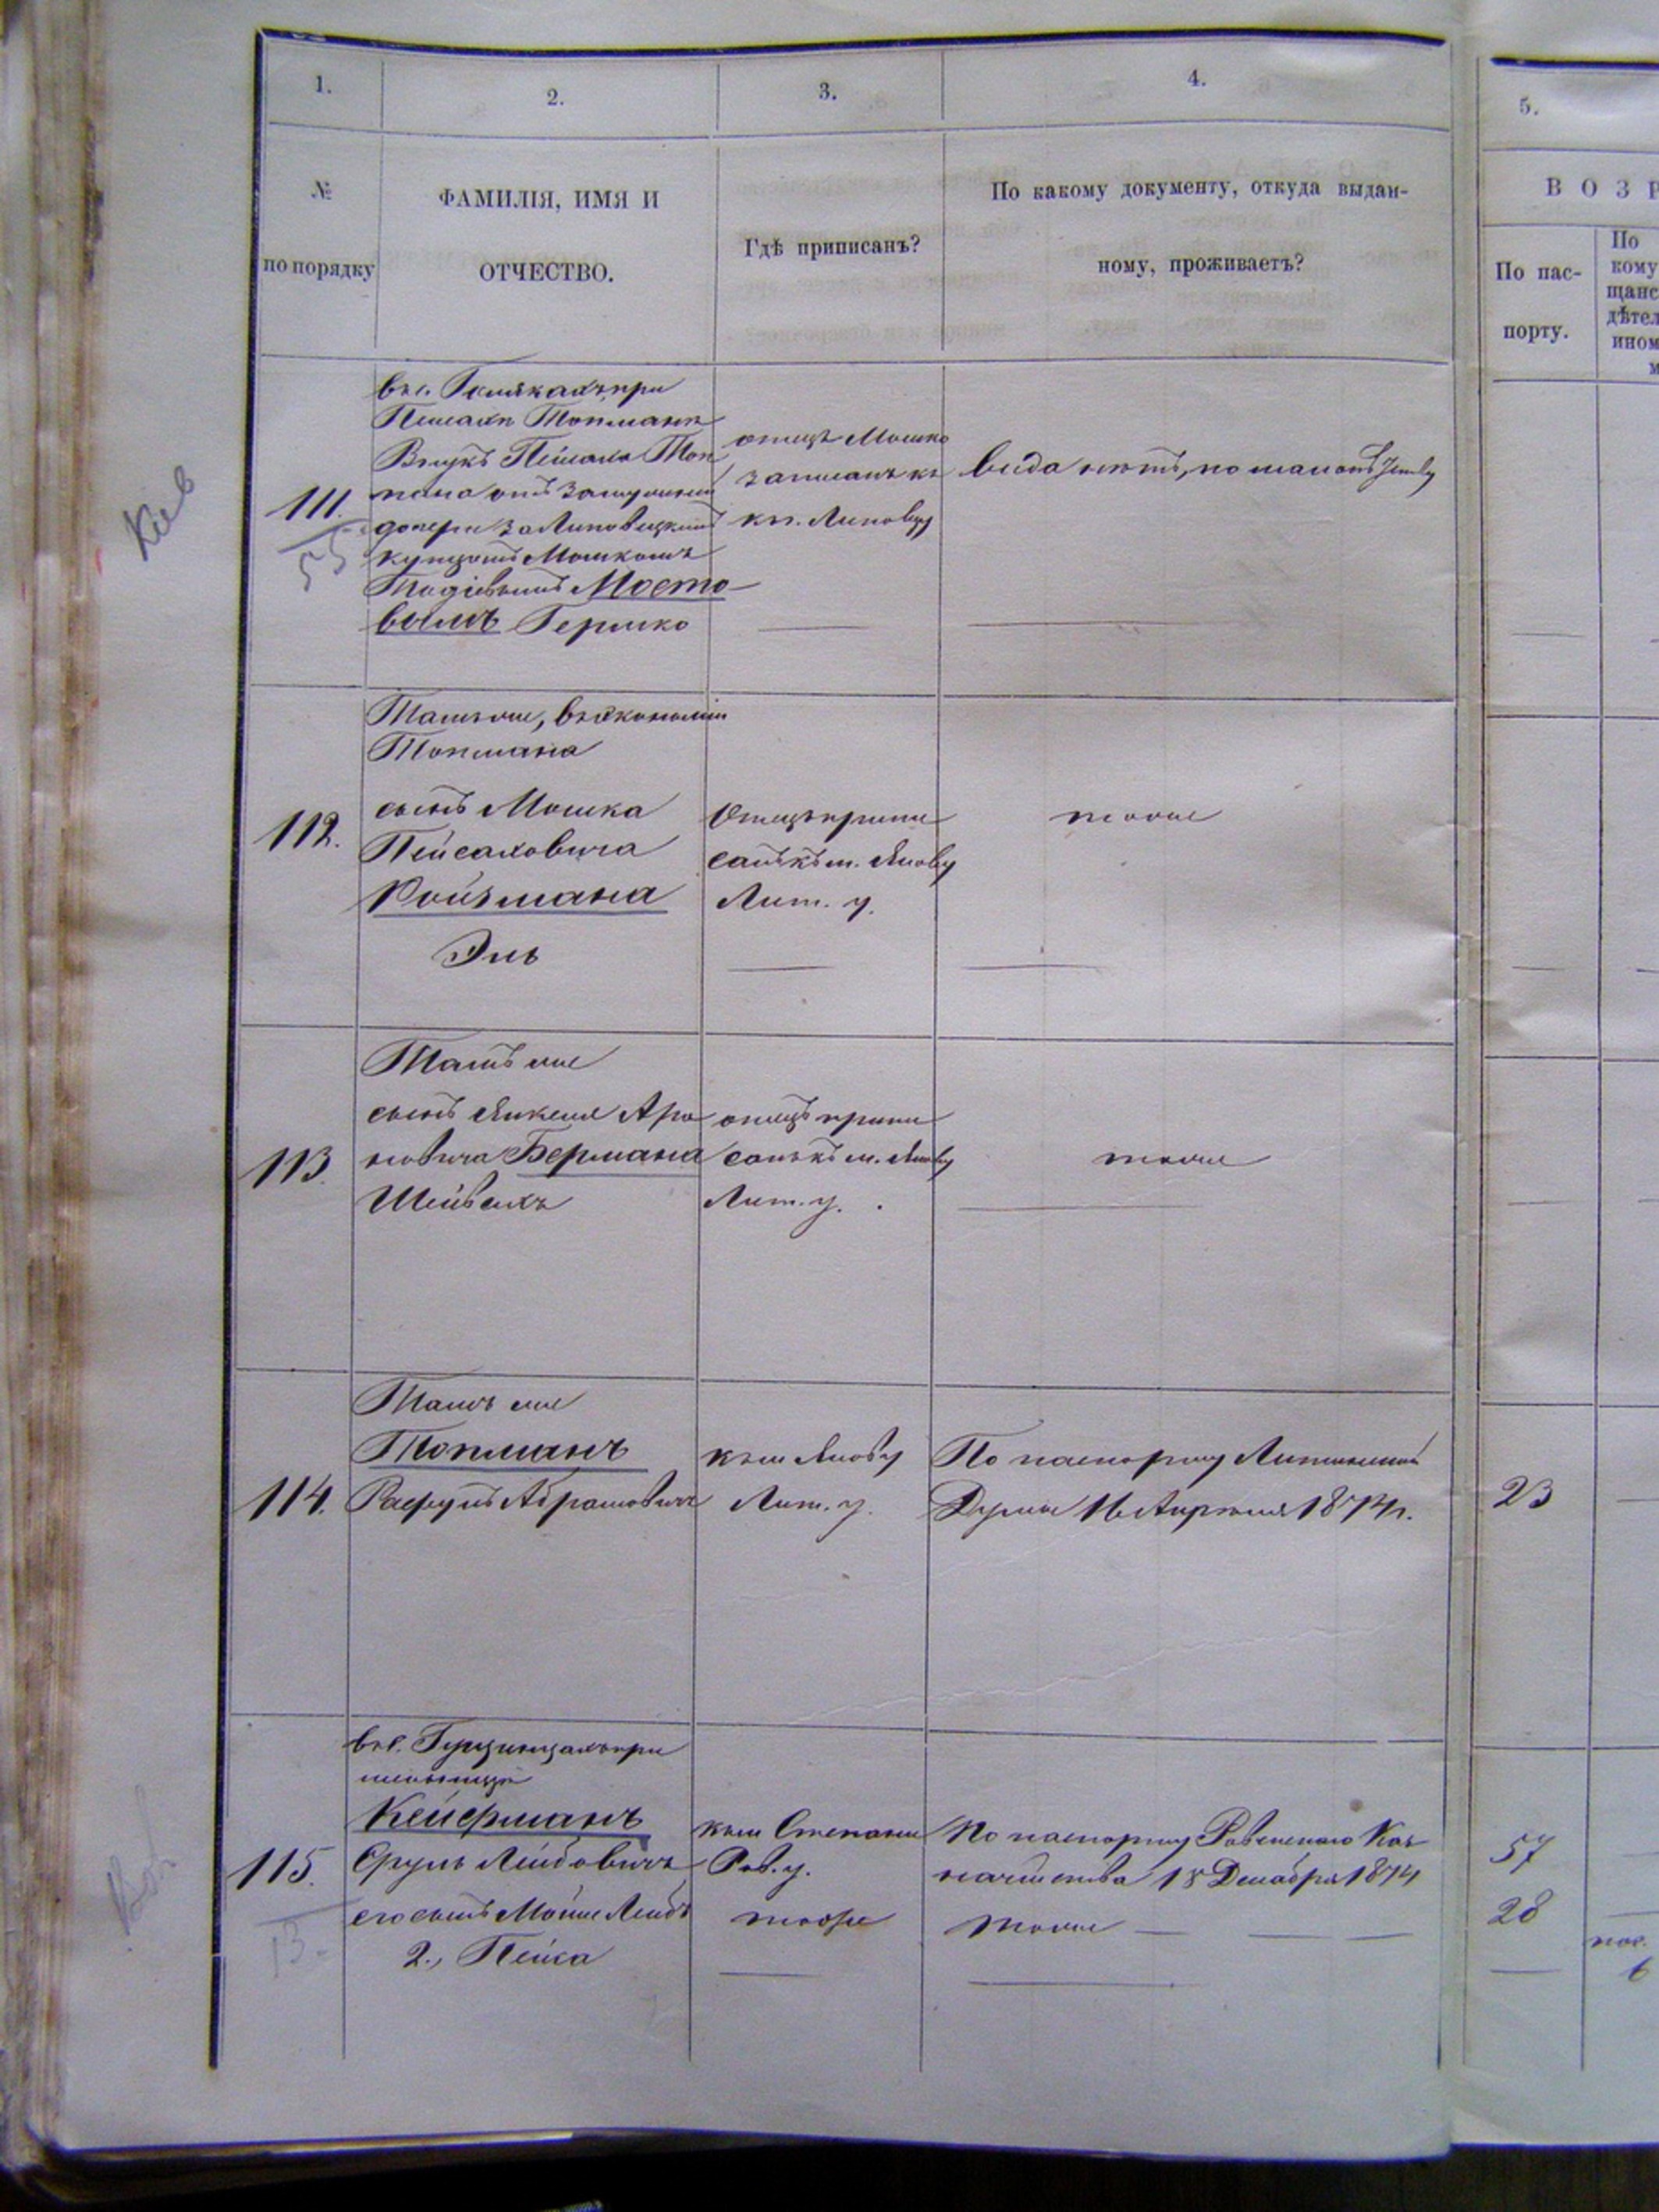 1.
2.
3.
4.
5.
№
по порядку
ФАМИЛІЯ, ИМЯ И
ОТЧЕСТВО.
Гдѣ приписанъ?
По какому документу, откуда выдан-
ному, проживаетъ?
ВОЗР
По пас-
порту.
По
кому
щанс
дѣтел
ином
Кіев
111.
55
въ с. при
Пейсахъ Топманъ
Внукъ Пейсаха Топ
мана отъ замужней
дочери за Липовецкимъ
купцомъ Мошкомъ
Мосто-
вымъ Гершко
отецъ Мошко
записанъ къ
куп. Липовцу
вида нѣтъ, по
112.
Тамъ же, въ экономіи
Топмана
сынъ Мошка
Пейсаховича
Ройзмана
Эль
Отецъ припи
санъ къ м. Янову
Лит. у.
тоже
113.
Тамъ же
сынъ Янкеля Аро
новича Бермана
Шейвехъ
отецъ припи
санъ къ м. Янову
Лит. у.
тоже
114.
Тамъ же
Топманъ
Рафулъ Абрамовичъ
къ м Янову
Лит. у.
По паспорту Литинской
Думы 16 Апрѣля 1874 г.
23
115.
13
въ с. Гущинцахъ при
мельницѣ
Кейфманъ
Сруль Лейбовичъ
его сынъ Мойше Лейбъ
2., Пейса
къ м Степани
Ров. у.
тоже
По паспорту Ровенскаго Каз
начейства 18 Декабря 1874
тоже
57
28
6